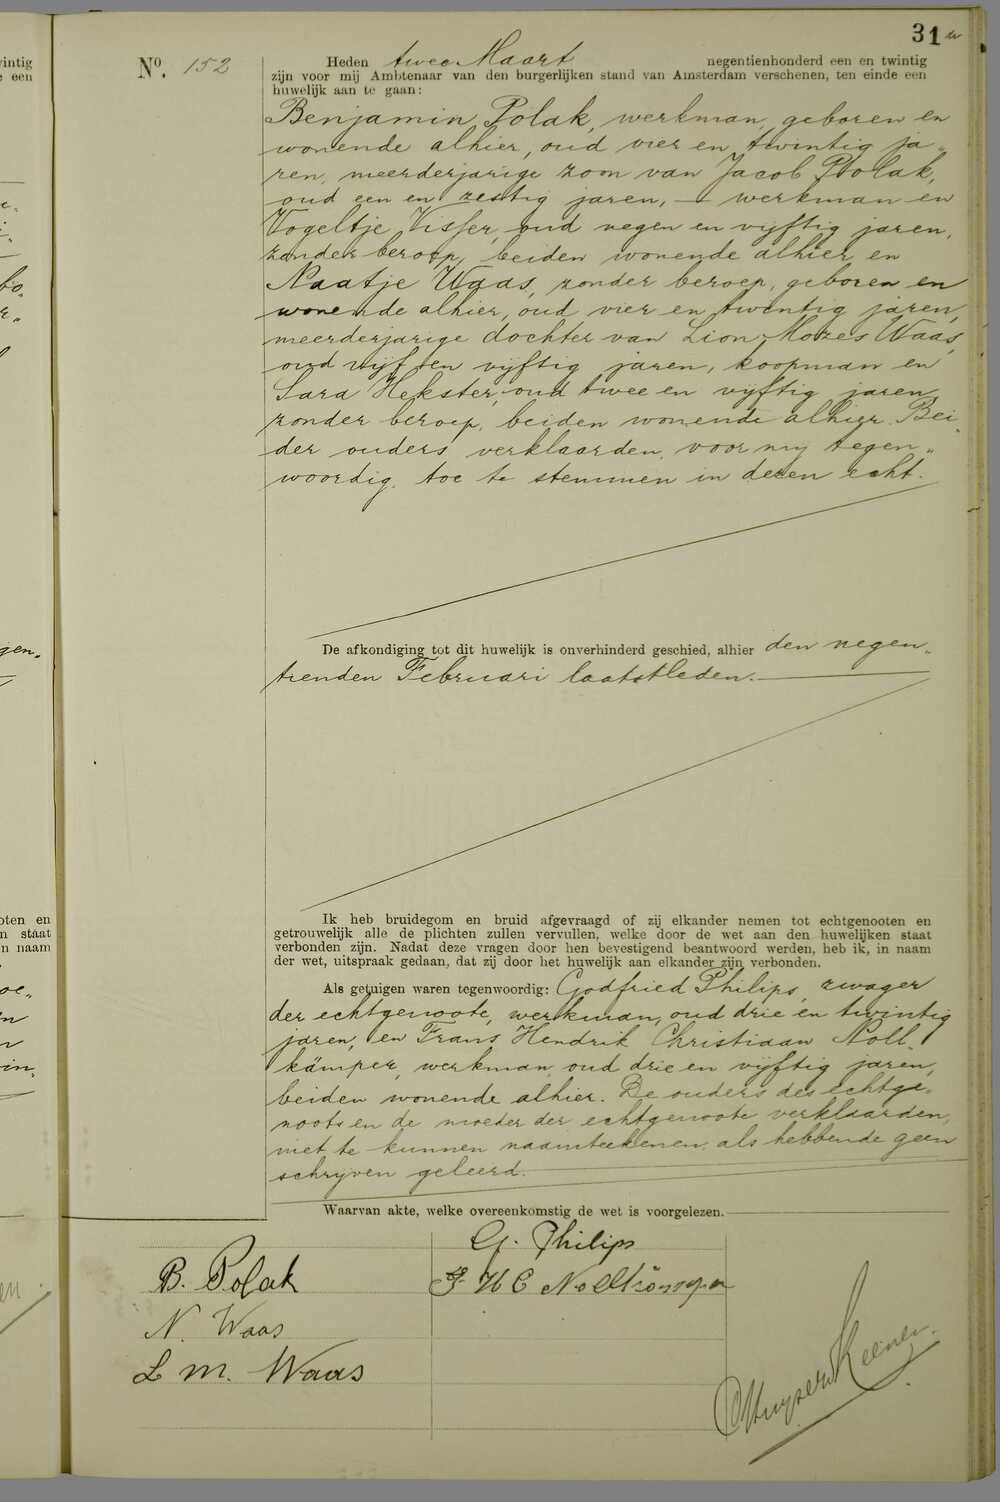 31
No. 152
Heden twee Maart negentienhonderd een en twintig
zijn voor mij Ambtenaar van den burgerlijken stand van Amsterdam verschenen, ten einde een
huwelijk aan te gaan:
Benjamin Polak, werkman, geboren en
wonende alhier, oud vier en twintig ja„
ren, meerderjarige zoon van Jacob Polak,
oud een en zestig jaren, — werkman en
Vogeltje Visser, oud negen en vijftig jaren,
zonder beroep, beiden wonende alhier en
Naatje Waas, zonder beroep, geboren en
wonende alhier, oud vier en twintig jaren,
meerderjarige dochter van Lion Mozes Waas,
oud vijf en vijftig jaren, koopman en
Sara Hekster, oud twee en vijftig jaren,
zonder beroep, beiden wonende alhier. Bei„
der ouders verklaarden, voor mij tegen„
woordig, toe te stemmen in dezen echt.
De afkondiging tot dit huwelijk is onverhinderd geschied, alhier den negen„
tienden Februari laatstleden.
Ik heb bruidegom en bruid afgevraagd of zij elkander nemen tot echtgenooten en
getrouwelijk alle de plichten zullen vervullen, welke door de wet aan den huwelijken staat
verbonden zijn. Nadat deze vragen door hen bevestigend beantwoord werden, heb ik, in naam
der wet, uitspraak gedaan, dat zij door het huwelijk aan elkander zijn verbonden.
Als getuigen waren tegenwoordig: Godfried Philips, zwager
der echtgenoote, werkman, oud drie en twintig
jaren, en Frans Hendrik Christiaan Noll„
kämper, werkman, oud drie en vijftig jaren,
beiden wonende alhier. De ouders des echtge„
noots en de moeder der echtgenoote verklaarden,
niet te kunnen naamteekenen, als hebbende geen
schrijven geleerd.
Waarvan akte, welke overeenkomstig de wet is voorgelezen.
G. Philips
B. Polak
F H C Nollkämper
N. Waas
L M. Waas